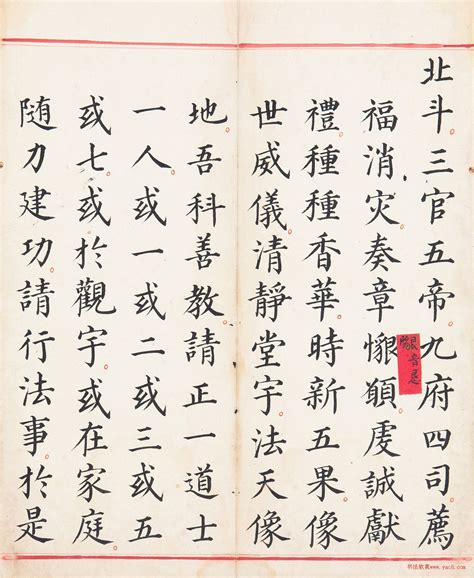 北斗三官五帝九府四司薦
福消灾奏章懇願虔誠獻
禮種種香華時新五果像
世威儀清靜堂宇法天像
地吾科善教請正一道士
一人或一或二或三或五
或七或於觀宇或在家庭
随力建功請行法事於是
书法欣赏www.yac8.com